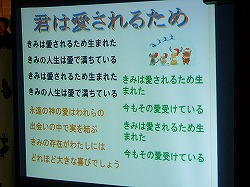 君は愛されるため
きみは愛されるため生まれた
きみの人生は愛で満ちている
きみは愛されるため生まれた
きみの人生は愛で満ちている
永遠の神の愛はわれらの
出会いの中で実を結ぶ
きみの存在がわたしには
どれほど大きな喜びでしょう
きみは愛されるため生
まれた
今もその愛受けている
きみは愛されるため生
まれた
今もその愛受けている